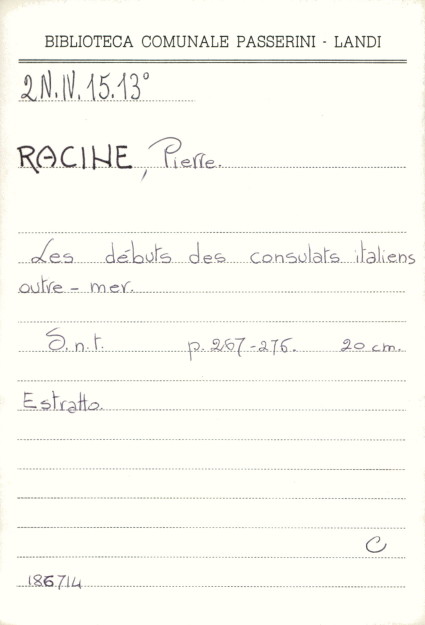 BIBLIOTECA COMUNALE PASSERINI - LANDI
2N.IV.15.13°
RACINE, Pierre.
Les débuts des consulats italiens
outre-mer.
S.n.t. p. 267-276. 20 cm.
Estratto.
C
186714